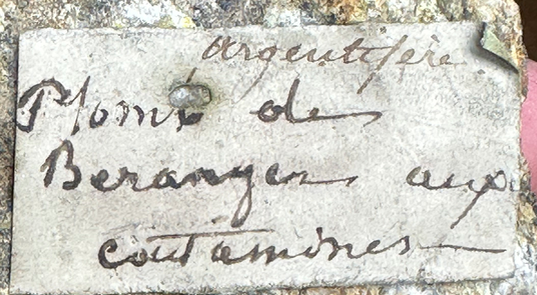 argentifère
Plomb de
Beranger aux
contamines